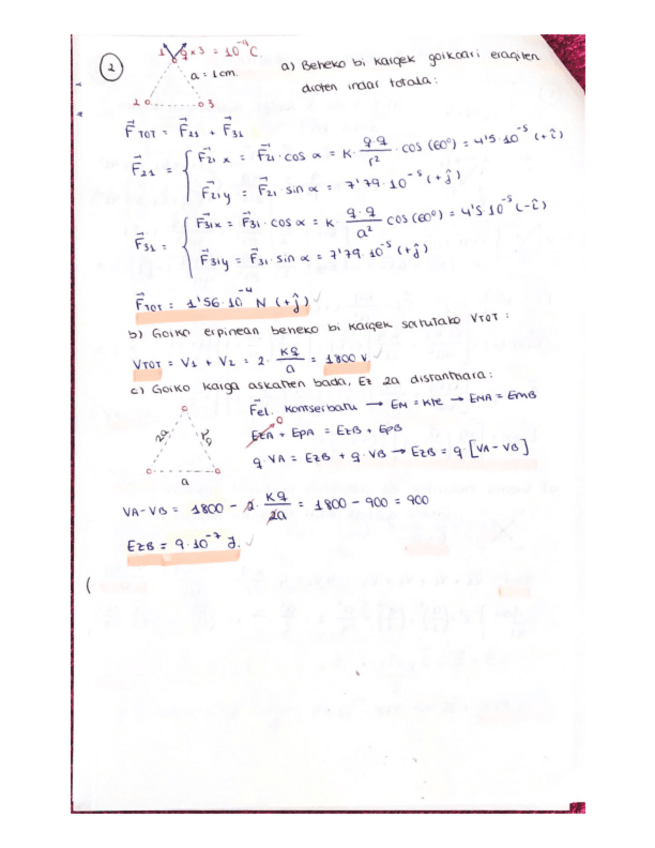 2
1 q x 3 = 10⁻⁹ C.
a = 1cm.
2 3
a) Beheko bi kargek goikoari eragiten
dioten indar totala:
F⃗TOT = F⃗21 + F⃗31
F⃗21 = { F⃗21 x = F⃗21 · cos α = K · q·q / r² · cos (60º) = 4'5·10⁻⁵ (+î)
F⃗21y = F⃗21 · sin α = 7'79·10⁻⁵ (+ĵ)
F⃗31 = { F⃗31x = F⃗31 · cos α = K · q·q / a² cos (60º) = 4'5·10⁻⁵ (-î)
F⃗31y = F⃗31 · sin α = 7'79·10⁻⁵ (+ĵ)
F⃗TOT = 1'56·10⁻⁴ N (+ĵ)
b) Goiko erpinean beheko bi kargek sortutako VTOT :
VTOT = V1 + V2 = 2 · Kq / a = 1800 V.
c) Goiko karga askatzen bada, Ez 2a distantziara:
F⃗el. kontserbatu → EM = kte → EMA = EMB
0
EzA + EPA = EzB + EPB
q · VA = EzB + q · VB → EzB = q · [VA - VB]
2a 2a
a
VA - VB = 1800 - 2 · Kq / 2a = 1800 - 900 = 900
EzB = 9·10⁻⁷ J.
(